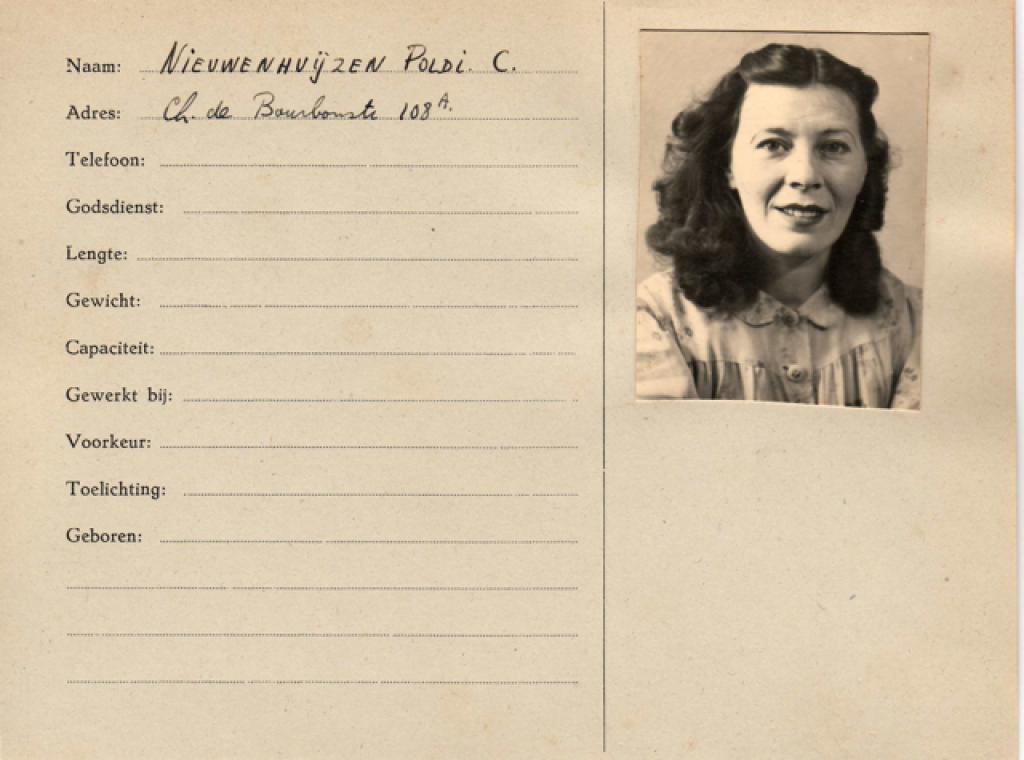 Naam: NIEUWENHUIJZEN POLDI. C.
Adres: Ch. de Bourbonstr 108A.
Telefoon:
Godsdienst:
Lengte:
Gewicht:
Capaciteit:
Gewerkt bij:
Voorkeur:
Toelichting:
Geboren: